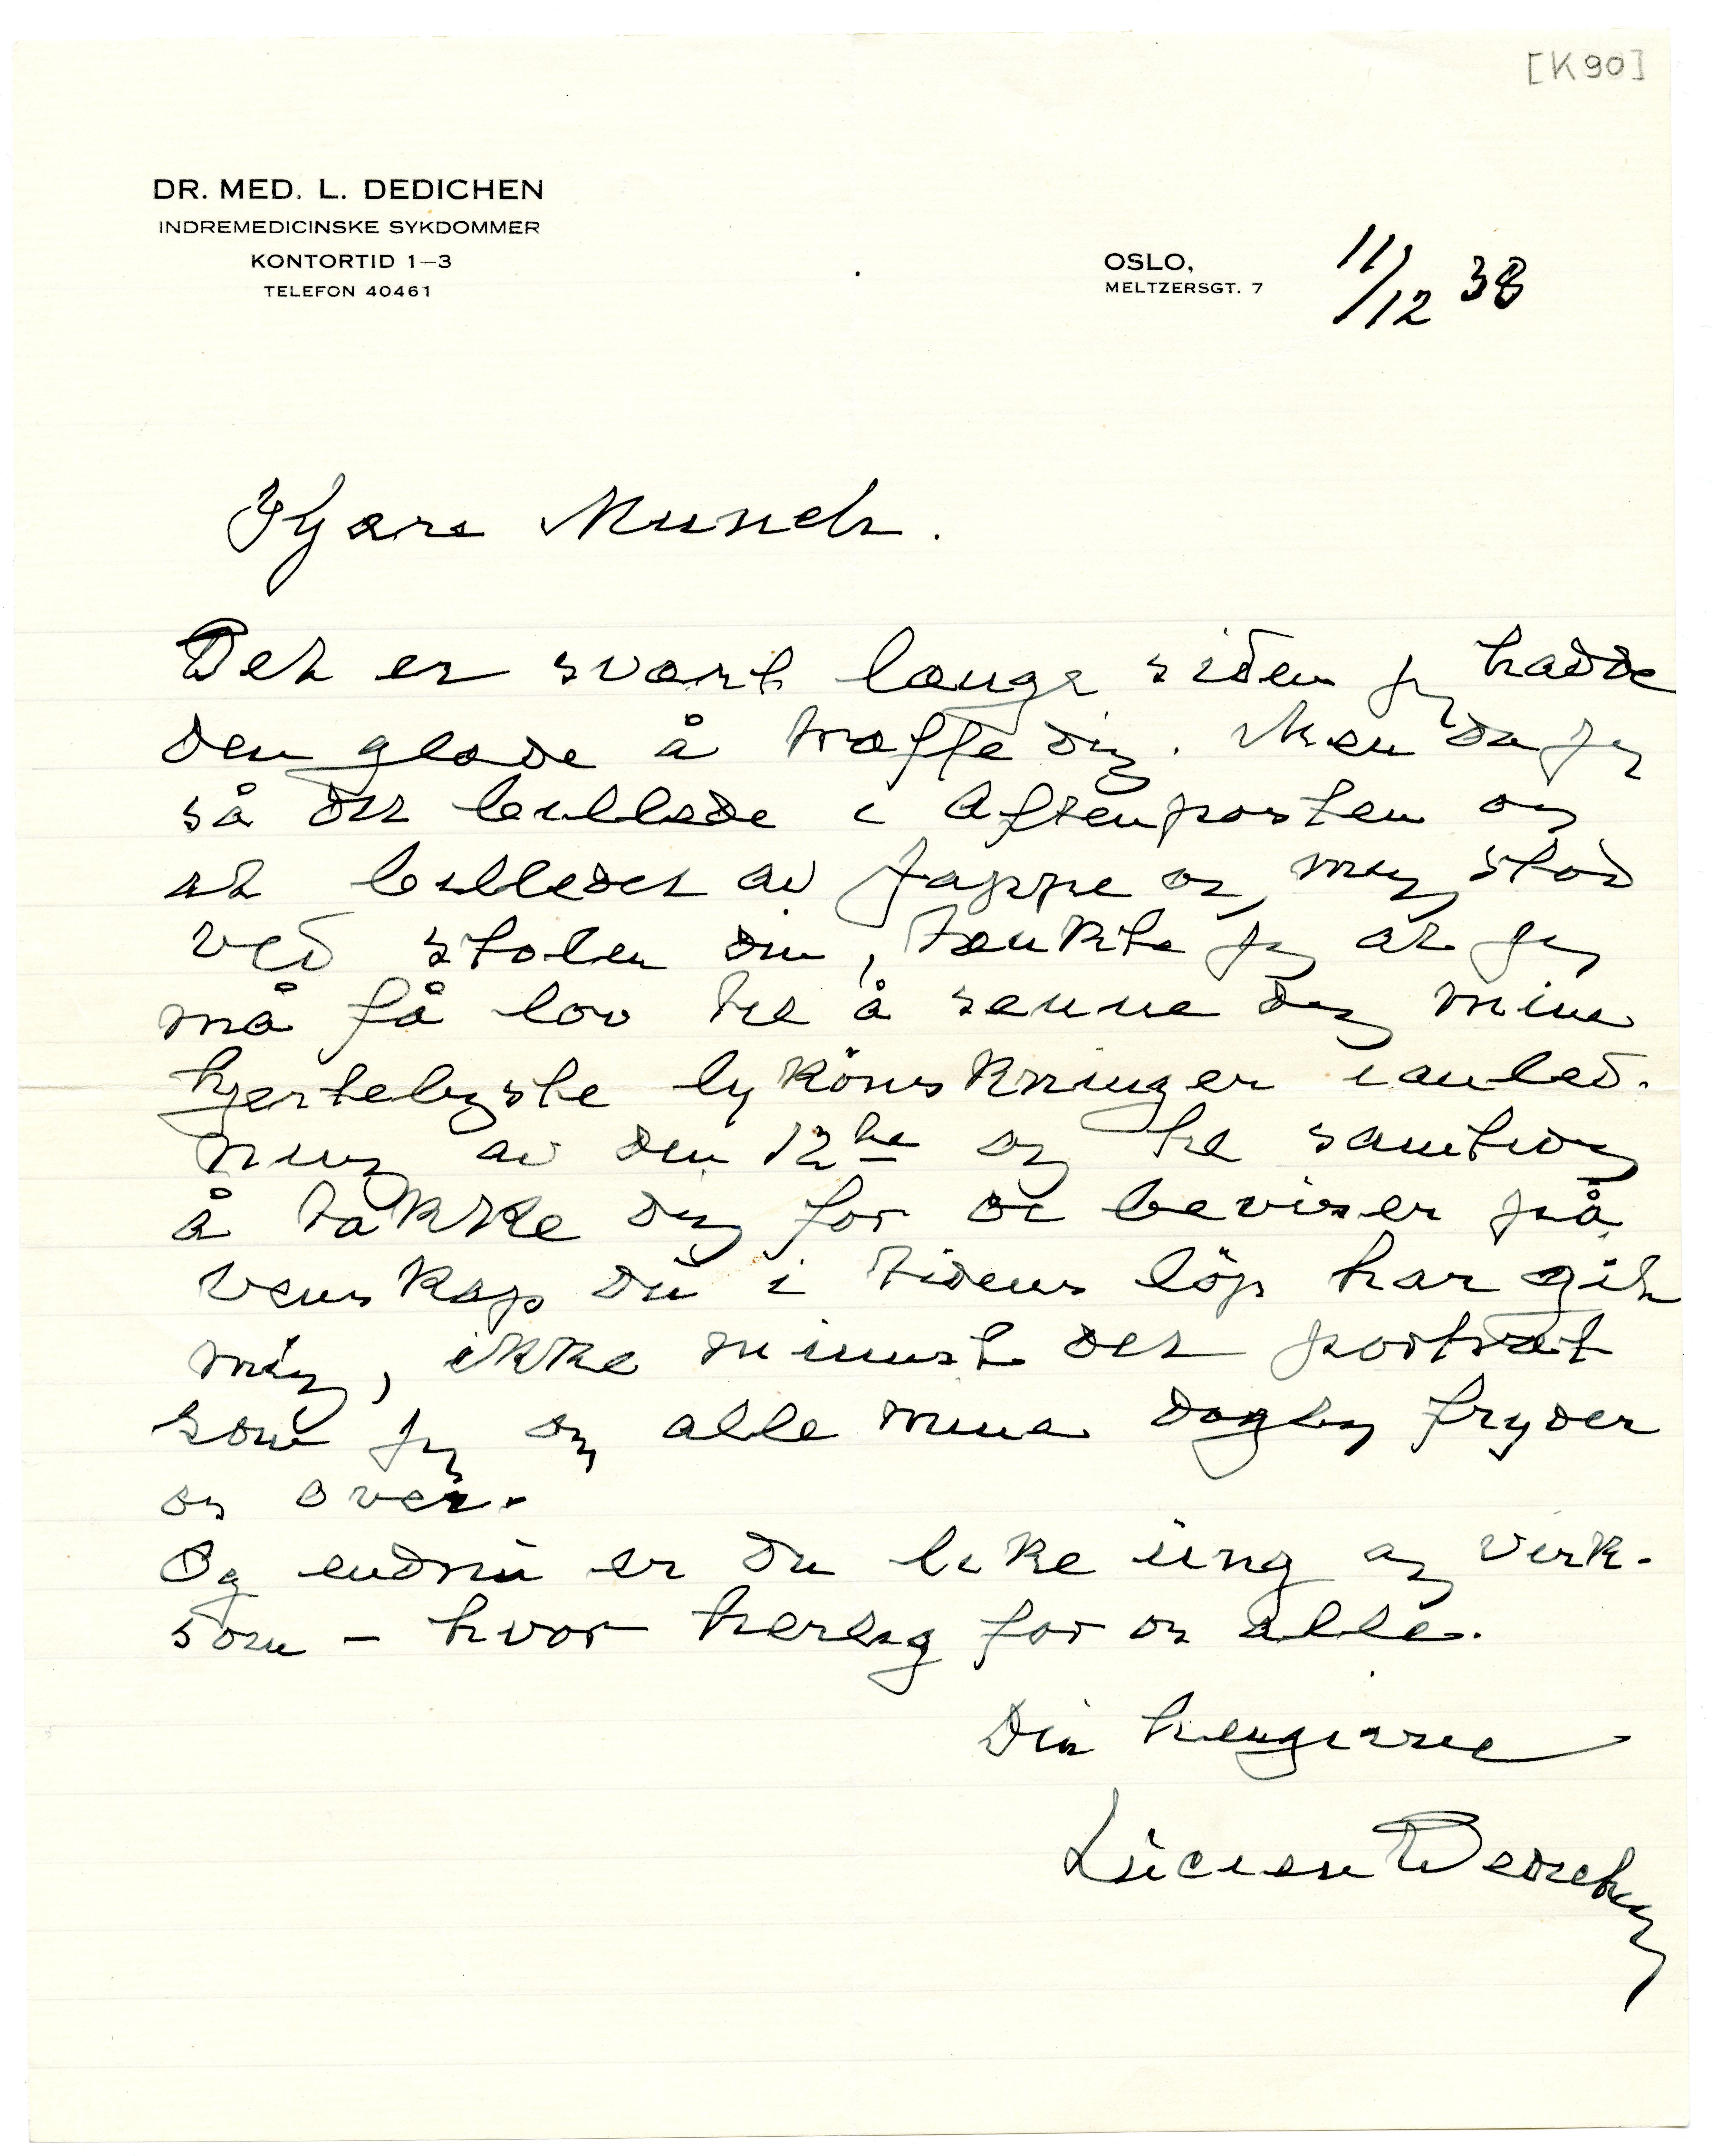 [K90]
DR. MED. L. DEDICHEN
INDREMEDICINSKE SYKDOMMER
KONTORTID 1–3
TELEFON 40461
OSLO,
MELTZERSGT. 7
11/12 38
Kjære Munch.
Det er svært længe siden jeg hadde
den glæde å træffe dig. Men da jeg
så dit billede i Aftenposten og
at billedet av Jappe og mig stod
ved stolen din, tænkte jeg at jeg
må få lov til å senne dig mine
hjerteligste lykönskninger i anled-
ning av den 12te og til samtidig
å takke dig for de beviser på
venskap du i tidens löp har git
mig, ikke minnst det portræt
som jeg og alle mine daglig fryder
os over.
Og endnu er du like ung og virk-
som – hvor herlig for os alle.
Din hengivne
Lucien Dedichen